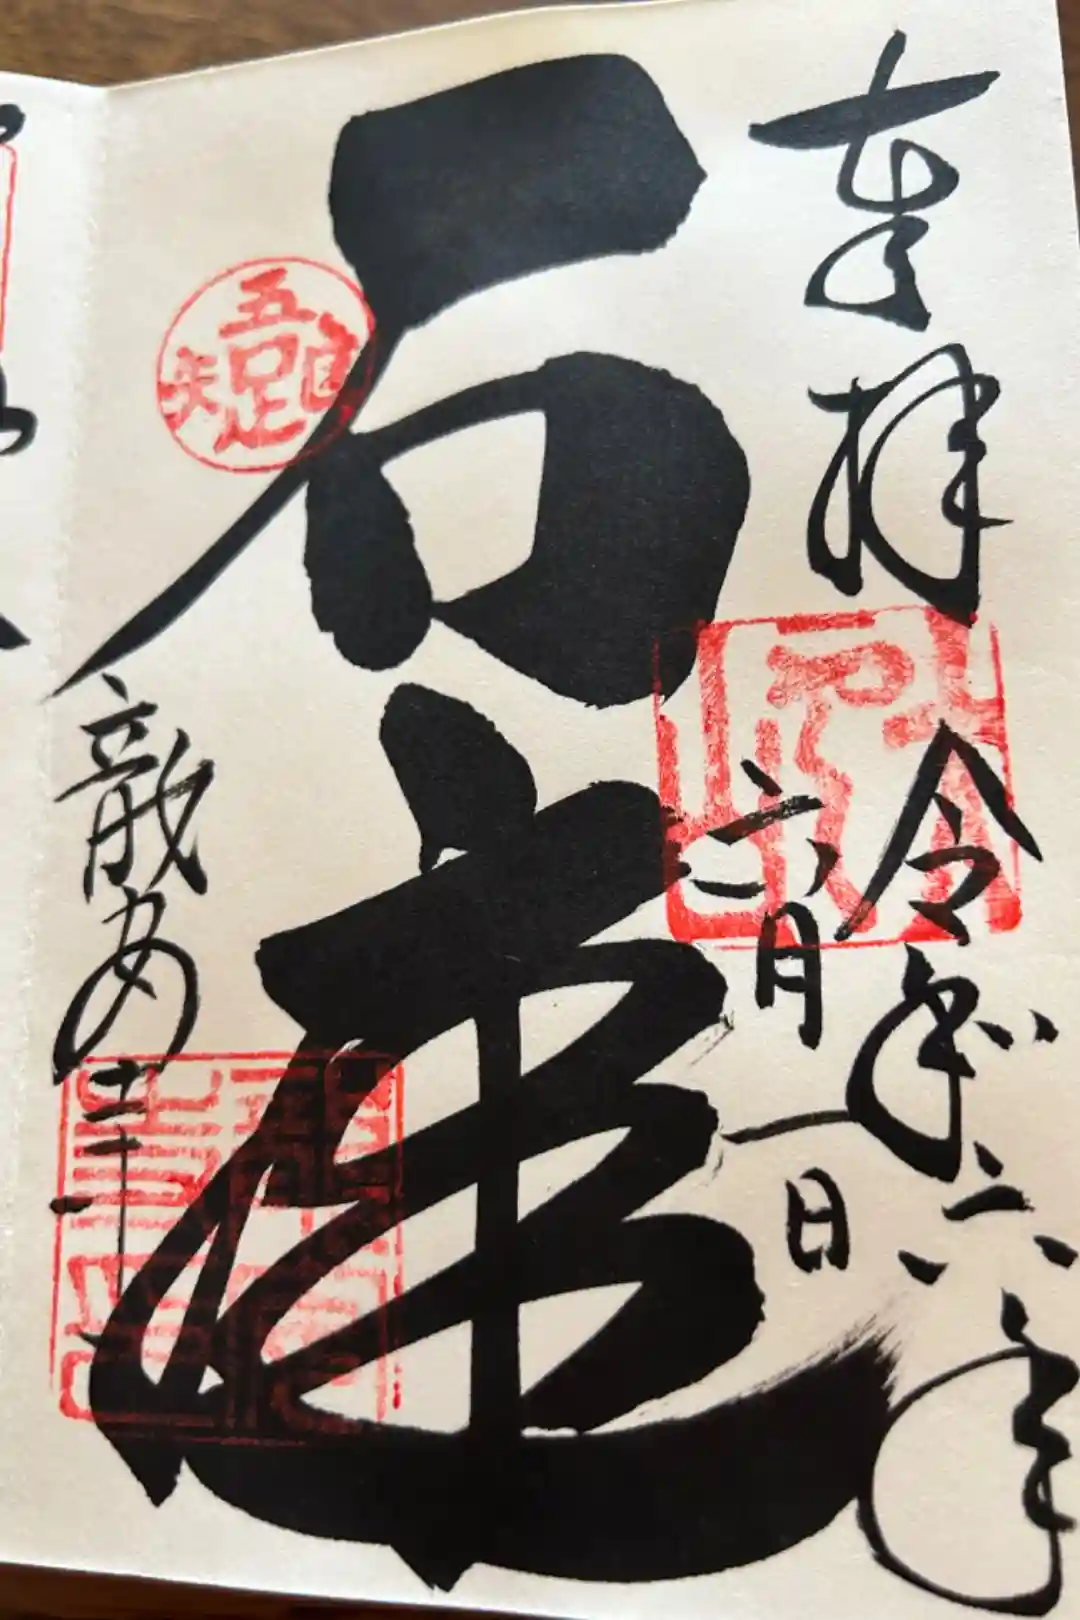 奉拝
令和六年
六月一日
石庭
吾唯足知
龍安寺